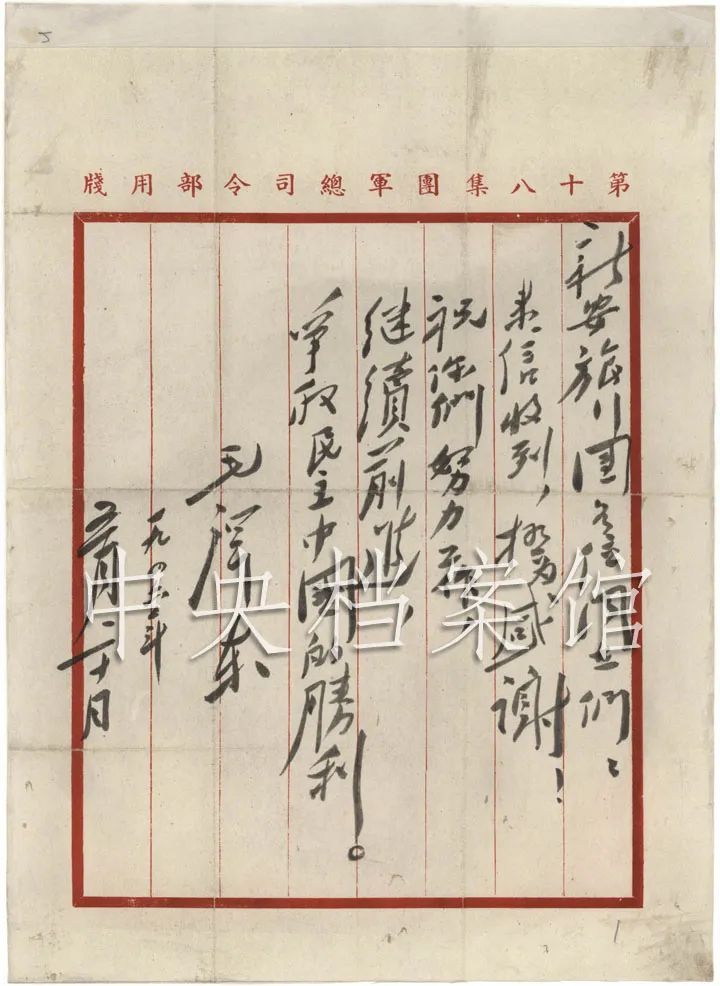 5
第十八集團軍總司令部用牋
新安旅行團 同志們:
來信收到,極為感谢!
祝你們努力
继續前進,
爭取民主中國的勝利。
毛澤东
一九四六年
五月二十日
中央档案馆
1